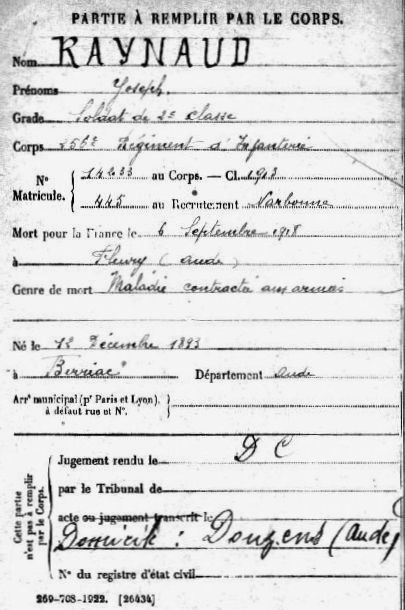 PARTIE À REMPLIR PAR LE CORPS.
Nom RAYNAUD
Prénoms Joseph.
Grade Soldat de 2e classe
Corps 256e Régiment d'Infanterie
N° Matricule. { 14233 au Corps. — Cl. 1913
445 au Recrutement Narbonne
Mort pour la France le 6 Septembre 1918
à Fleury (aude)
Genre de mort Maladie contractée aux armées
Né le 12 Décembre 1893
à Berriac Département aude
Arrt municipal (pr Paris et Lyon), à défaut rue et N°. }
Cette partie n'est pas à remplir par le Corps.
Jugement rendu le D C
par le Tribunal de
acte ou jugement transcrit le
Domicile : Douzens (aude)
N° du registre d'état civil
269-708-1922. [26434]